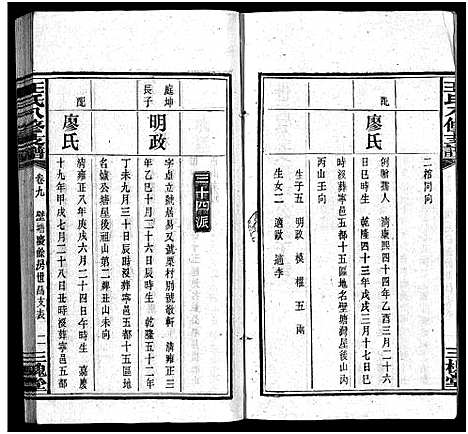 王氏八修支譜
三槐堂
二棺同向
配
廖氏
創翰孺人 清康熙四十四年乙酉三月二十八
日巳時生 乾隆四十三年戊戌二月十七日巳
時沒葬寧邑五都十五區地名壁塘灣屋後山
丙山壬向
生子五 明政 模 權 五 南
生女二 適歐 適李
三十四派
庭坤
長子
明政
字虛立號居易又號栗村別號敬軒 清雍正三
年乙巳十月二十六日辰時生 乾隆五十二年
丁未九月三十日辰時沒葬寧邑五都十五區地
名爐公塘屋後祖山第二棺丑山未向
配
廖氏
清雍正八年庚戌六月二十四日午時生 嘉慶
十九年甲戌七月二十八日丑時沒葬寧邑五都
王氏八修支譜
卷九
壁塘慶餘房世昌支表
三槐堂